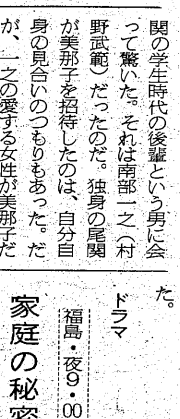 関の学生時代の後輩という男に会
って驚いた。それは南部一之（村
野武範）だったのだ。独身の尾関
が美那子を招待したのは、自分自
身の見合いのつもりもあった。だ
が、一之の愛する女性が美那子だ
た。
ドラマ
福島・夜9・00
家庭の秘密